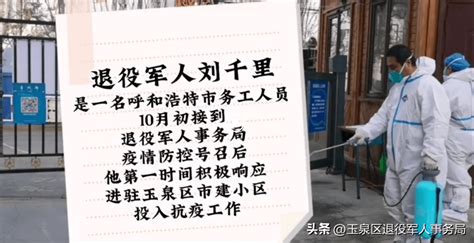 退役军人刘千里
是一名呼和浩特市务工人员
10月初接到
退役军人事务局
疫情防控号召后
他第一时间积极响应
进驻玉泉区市建小区
投入抗疫工作
头条 @玉泉区退役军人事务局